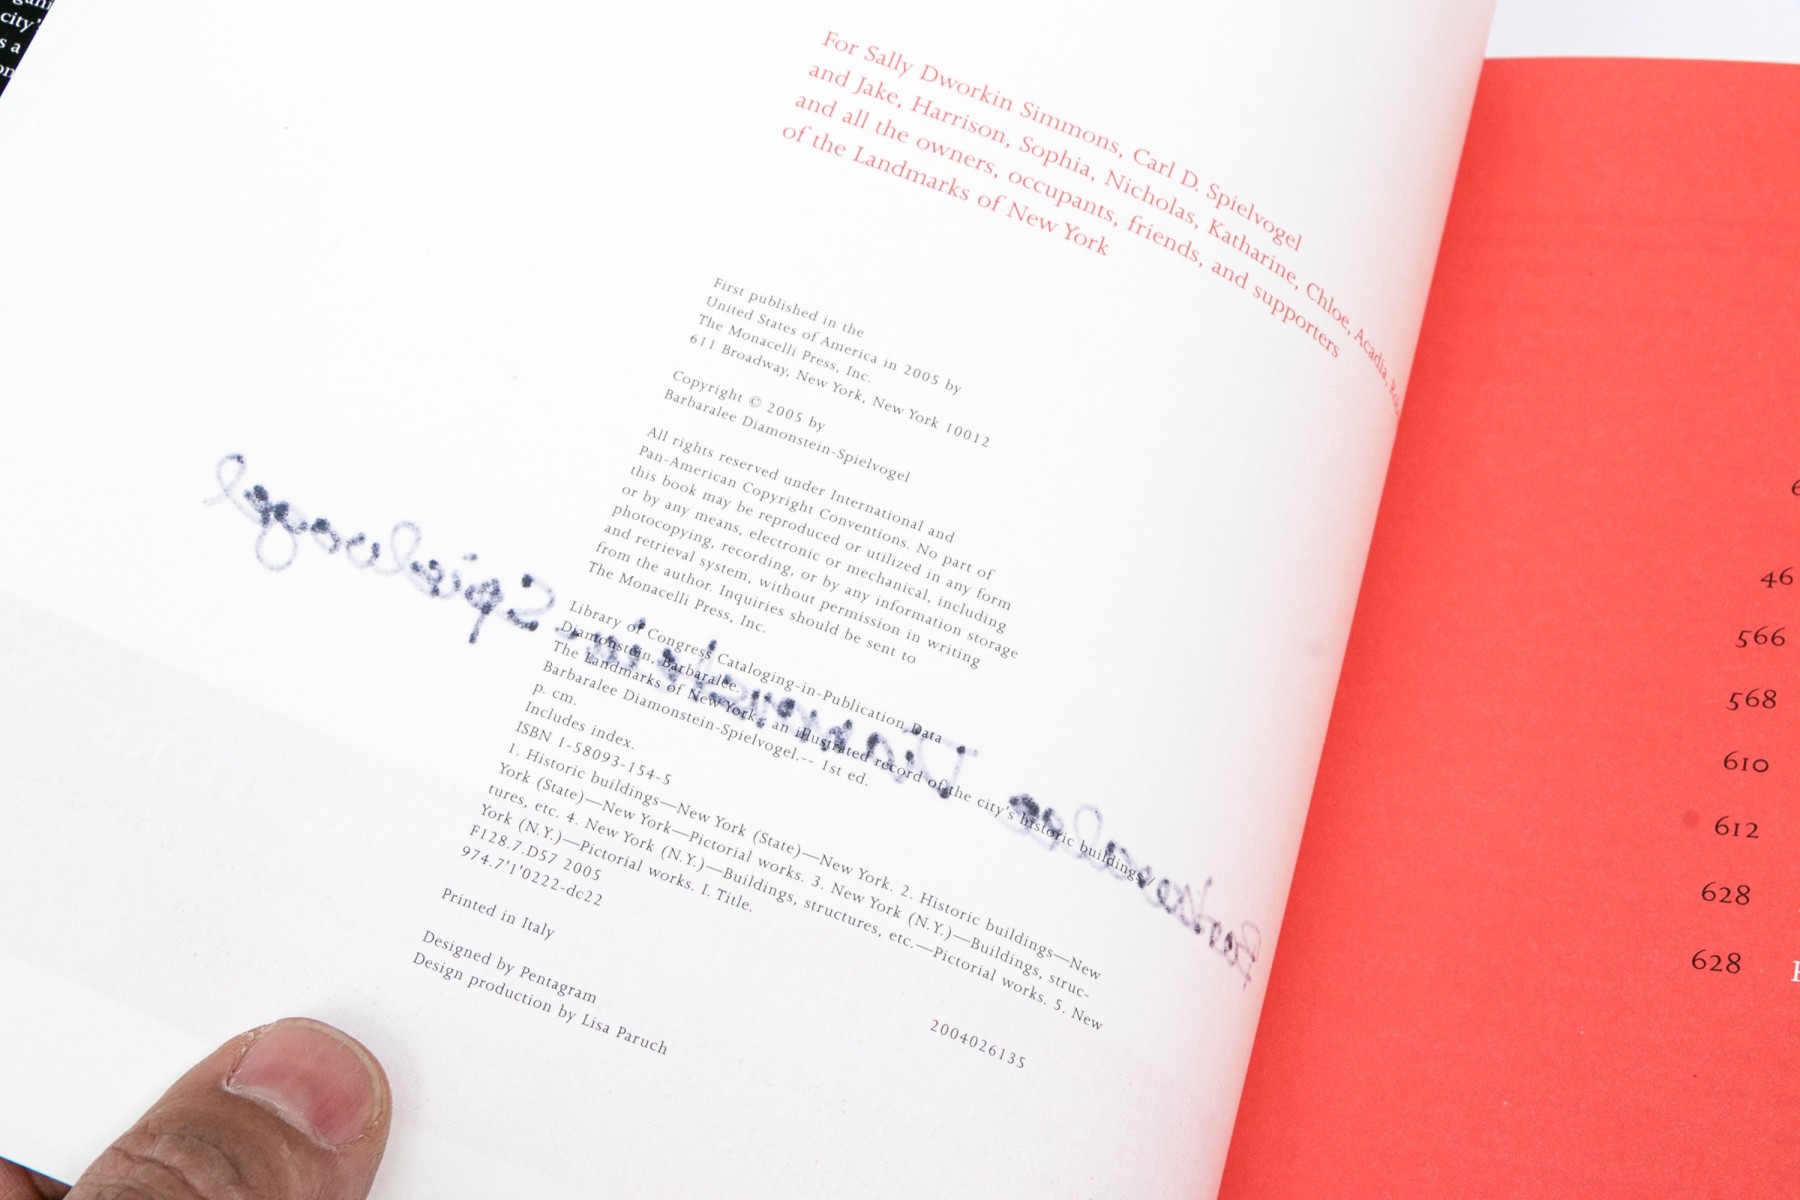 For Sally Dworkin Simmons, Carl D. Spielvogel
and Jake, Harrison, Sophia, Nicholas, Katharine, Chloe, Acadia,
and all the owners, occupants, friends, and supporters
of the Landmarks of New York
First published in the
United States of America in 2005 by
The Monacelli Press, Inc.
611 Broadway, New York, New York 10012
Copyright © 2005 by
Barbaralee Diamonstein-Spielvogel
All rights reserved under International and
Pan-American Copyright Conventions. No part of
this book may be reproduced or utilized in any form
or by any means, electronic or mechanical, including
photocopying, recording, or by any information storage
and retrieval system, without permission in writing
from the author. Inquiries should be sent to
The Monacelli Press, Inc.
Library of Congress Cataloging-in-Publication Data
Diamonstein, Barbaralee.
The Landmarks of New York : an illustrated record of the city's historic buildings /
Barbaralee Diamonstein-Spielvogel.-- 1st ed.
p. cm.
Includes index.
ISBN 1-58093-154-5
1. Historic buildings—New York (State)—New York. 2. Historic buildings—New
York (State)—New York—Pictorial works. 3. New York (N.Y.)—Buildings, struc-
tures, etc. 4. New York (N.Y.)—Buildings, structures, etc.—Pictorial works. 5. New
York (N.Y.)—Pictorial works. I. Title.
F128.7.D57 2005
974.7'1'0222-dc22
2004026135
Printed in Italy
Designed by Pentagram
Design production by Lisa Paruch
Barbaralee Diamonstein-Spielvogel
city'
s a
46
566
568
610
612
628
628